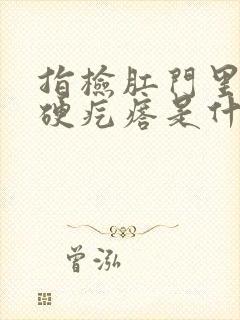 指檢肛門里
硬疙瘩是什
曾泓